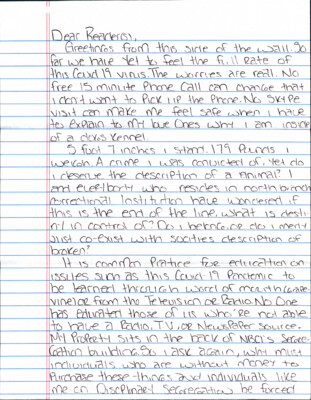 Dear Reader(s),
Greetings from this side of the wall. So
far we have yet to feel the full rate of
this Covid 19 virus. The worries are real. No
free 15 minute Phone Call can change that
I don't want to Pick up the Phone. No Skype
visit can make me feel safe when I have
to explain to my love ones why I am inside
of a dogs kennel.
5 foot 7 inches I stand. 179 Pounds I
weigh. A crime I was convicted of. Yet do
I deserve the description of a animal? I
and everybody who resides in north branch
correctional Institution have wondered if
this is the end of the line. What is desti-
ny in control of? Do I belong, or do I merely
just co-exist with societies description of
broken?
It is common Pratice for education on
issues such as this Covid-19 Pandemic to
be learned through word of mouth (grape-
vine) or from the Television or Radio. No One
has educated those of us who're not able
to have a Radio, T.V. or Newspaper source.
My Property sits in the back of NBCI's Segre-
gation building. So I ask again, why must
individuals who are without money to
Purchase these things and individuals like
me on Disciplinary Segregation be forced